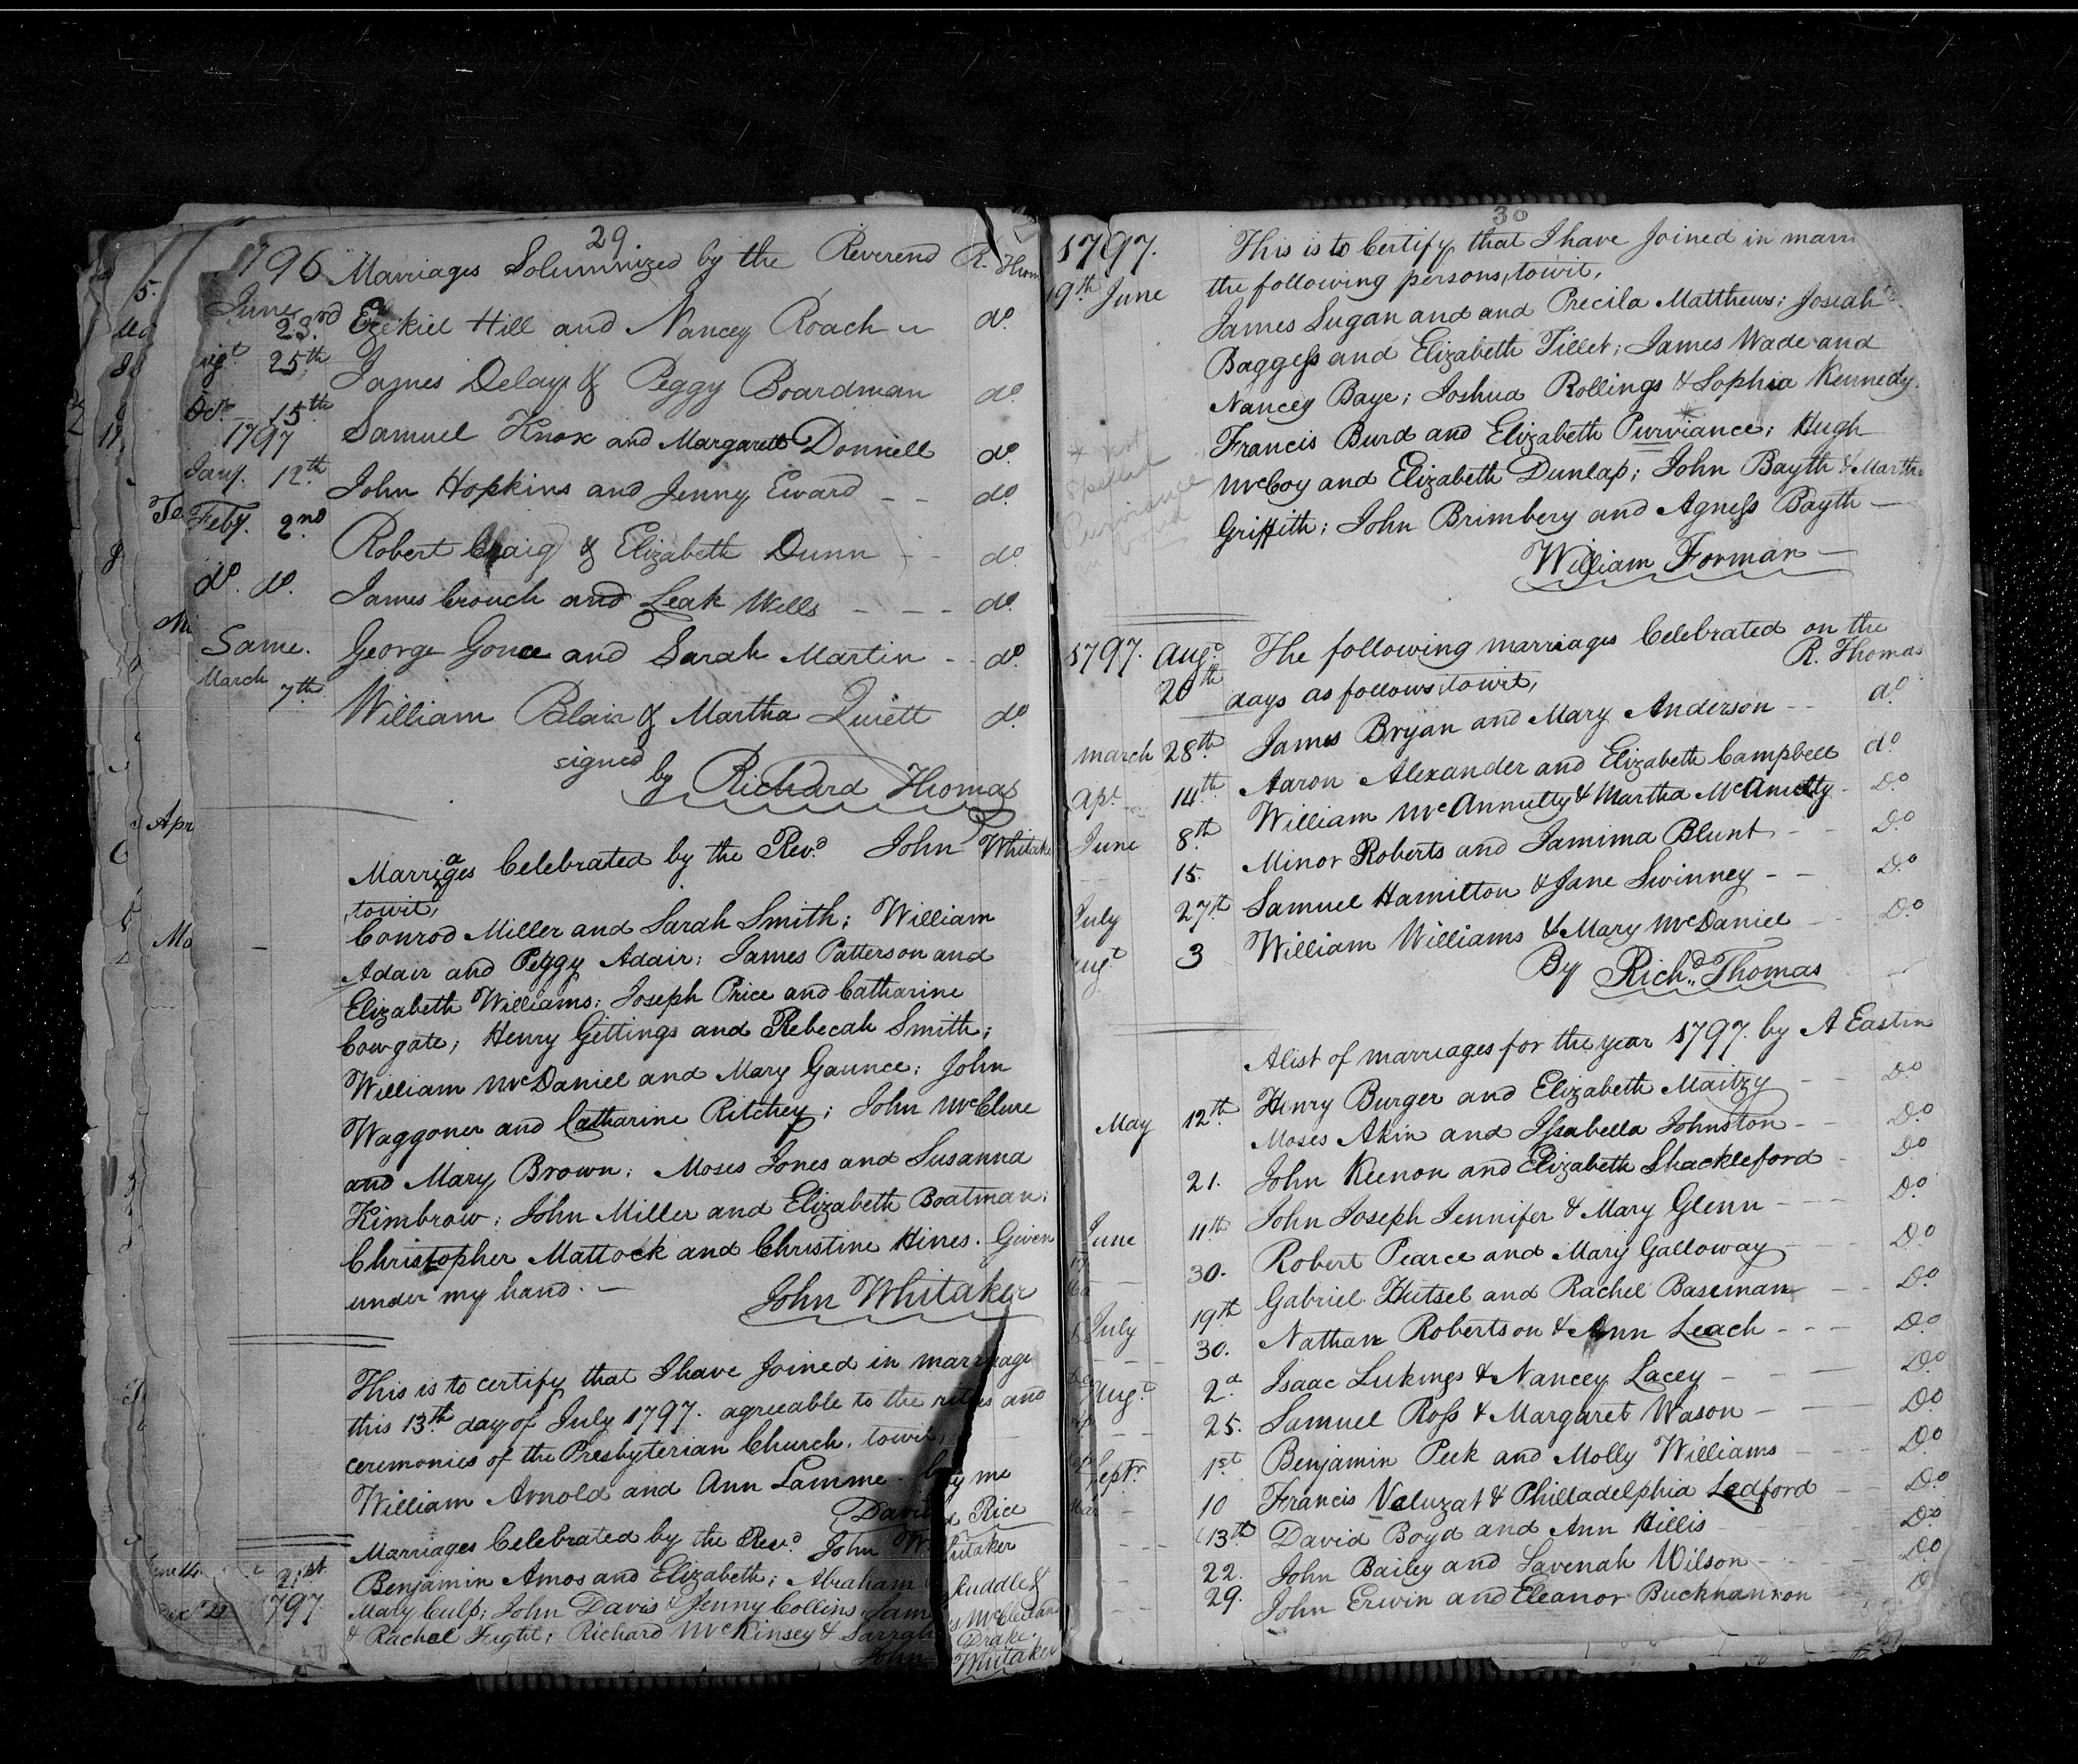 29
1796 Marriages Solumnized by the Reverend R. Thom
June 23rd Ezekiel Hill and Nancey Roach do
25th James Delay & Peggy Boardman do
Oct. 15th Samuel Knox and Margarett Donnell do
1797
Jany. 12th John Hopkins and Jenny Eward - - do
Feby. 2nd Robert Craig & Elizabeth Dunn - do
do. do. James Crouch and Leah Wells - - - do
Same. George Gonce and Sarah Martin - - do
March 7th William Blair & Martha Quiett do
signed by Richard Thomas
Marriages Celebrated by the Revd. John Whitake
towit,
Conrod Miller and Sarah Smith; William
Adair and Peggy Adair; James Patterson and
Elizabeth Williams; Joseph Price and Catharine
Cowgate; Henry Gittings and Rebecah Smith;
William McDaniel and Mary Gaunce; John
Waggoner and Catharine Ritchey; John McClure
and Mary Brown; Moses Jones and Susanna
Kimbrow; John Miller and Elizabeth Boatman;
Christopher Mattock and Christine Hines. Given
under my hand. -
John Whitaker
This is to certify that I have Joined in marriage
this 13th day of July 1797. agreeable to the rites and
ceremonies of the Presbyterian Church, towit,
William Arnold and Ann Lamme - by me
David Rice
Marriages Celebrated by the Revd. John Whitaker
21st Benjamin Amos and Elizabeth; Abraham Ruddle &
1797 Mary Culp; John Davis & Jenny Collins; James McClellan
& Rachel Fught; Richard McKinsey & Sarrah Drake.
John Whitaker
30
1797. This is to Certify that I have Joined in marri
19th June the following persons, towit,
James Sugan and and Precila Matthews; Josiah
Baggess and Elizabeth Tillet; James Wade and
Nancey Baye; Joshua Rollings & Sophia Kennedy
Francis Burd and Elizabeth Purviance; Hugh
McCoy and Elizabeth Dunlap; John Bayth & Martha
Griffith; John Brimbery and Agness Bayth -
William Forman -
* not
spelled
Purviance
1797. Augt 20th The following marriages Celebrated on the
days as follows, towit, R. Thomas
march 28th James Bryan and Mary Anderson - - do
Apl. 14th Aaron Alexander and Elizabeth Campbell do
June 8th William McAnnutty & Martha McAnulty - Do
15. Minor Roberts and Jamima Blunt - - Do
July 27th Samuel Hamilton & Jane Swinney - - Do
Augt 3 William Williams & Mary McDaniel - Do
By Richd. Thomas
A list of marriages for the year 1797. by A Eastin
May 12th Henry Burger and Elizabeth Maitzy - - Do
Moses Akin and Issabella Johnston - - Do
21. John Keenon and Elizabeth Shackleford - Do
June 11th John Joseph Jennifer & Mary Glenn - - - Do
30. Robert Pearce and Mary Galloway - - Do
July 19th Gabriel Hutsel and Rachel Baseman - - Do
30. Nathan Robertson & Ann Leach - - - Do
Augt 2d Isaac Lukings & Nancey Lacey - - Do
25. Samuel Ross & Margaret Wason - - Do
Septr. 1st Benjamin Peek and Molly Williams - - Do
10 Francis Veluzat & Philladelphia Ledford - - Do
13th David Boyd and Ann Hillis - Do
22. John Bailey and Savenah Wilson - - Do
29. John Erwin and Eleanor Bucknannon - D